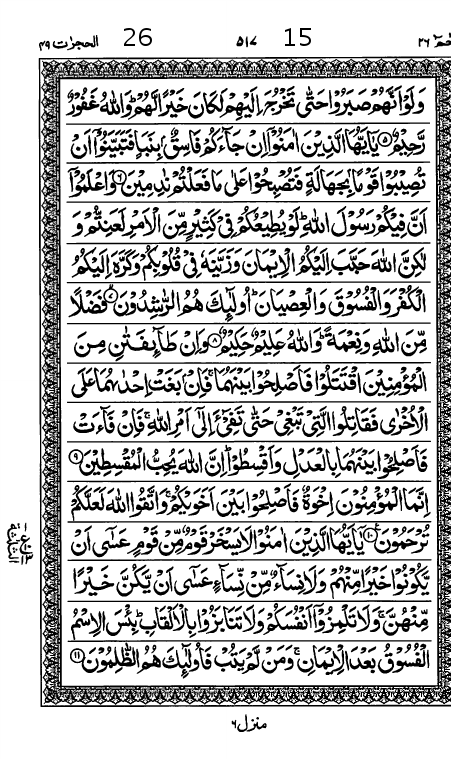 الحجرات ٤٩ 26 ٥١٧ 15 حٰمٓ ٢٦
وَلَوْ اَنَّهُمْ صَبَرُوْا حَتّٰى تَخْرُجَ اِلَيْهِمْ لَكَانَ خَيْرًا لَّهُمْ ؕ وَاللّٰهُ غَفُوْرٌ
رَّحِيْمٌ ۝۵ يٰۤاَيُّهَا الَّذِيْنَ اٰمَنُوْۤا اِنْ جَآءَكُمْ فَاسِقٌۢ بِنَبَاٍ فَتَبَيَّنُوْۤا اَنْ
تُصِيْبُوْا قَوْمًۢا بِجَهَالَةٍ فَتُصْبِحُوْا عَلٰى مَا فَعَلْتُمْ نٰدِمِيْنَ ۝۶ وَاعْلَمُوْۤا
اَنَّ فِيْكُمْ رَسُوْلَ اللّٰهِ ؕ لَوْ يُطِيْعُكُمْ فِيْ كَثِيْرٍ مِّنَ الْاَمْرِ لَعَنِتُّمْ وَ
لٰكِنَّ اللّٰهَ حَبَّبَ اِلَيْكُمُ الْاِيْمَانَ وَزَيَّنَهٗ فِيْ قُلُوْبِكُمْ وَكَرَّهَ اِلَيْكُمُ
الْكُفْرَ وَالْفُسُوْقَ وَالْعِصْيَانَ ؕ اُولٰٓئِكَ هُمُ الرّٰشِدُوْنَ ۝۷ فَضْلًا
مِّنَ اللّٰهِ وَنِعْمَةً ؕ وَاللّٰهُ عَلِيْمٌ حَكِيْمٌ ۝۸ وَاِنْ طَآئِفَتٰنِ مِنَ
الْمُؤْمِنِيْنَ اقْتَتَلُوْا فَاَصْلِحُوْا بَيْنَهُمَا ۚ فَاِنْۢ بَغَتْ اِحْدٰىهُمَا عَلَى
الْاُخْرٰى فَقَاتِلُوا الَّتِيْ تَبْغِيْ حَتّٰى تَفِيْٓءَ اِلٰۤى اَمْرِ اللّٰهِ ۚ فَاِنْ فَآءَتْ
فَاَصْلِحُوْا بَيْنَهُمَا بِالْعَدْلِ وَاَقْسِطُوْا ؕ اِنَّ اللّٰهَ يُحِبُّ الْمُقْسِطِيْنَ ۝۹
اِنَّمَا الْمُؤْمِنُوْنَ اِخْوَةٌ فَاَصْلِحُوْا بَيْنَ اَخَوَيْكُمْ ۚ وَاتَّقُوا اللّٰهَ لَعَلَّكُمْ
تُرْحَمُوْنَ ۝۱۰ يٰۤاَيُّهَا الَّذِيْنَ اٰمَنُوْا لَا يَسْخَرْ قَوْمٌ مِّنْ قَوْمٍ عَسٰۤى اَنْ
يَّكُوْنُوْا خَيْرًا مِّنْهُمْ وَلَا نِسَآءٌ مِّنْ نِّسَآءٍ عَسٰۤى اَنْ يَّكُنَّ خَيْرًا
مِّنْهُنَّ ۚ وَلَا تَلْمِزُوْۤا اَنْفُسَكُمْ وَلَا تَنَابَزُوْا بِالْاَلْقَابِ ؕ بِئْسَ الِاسْمُ
الْفُسُوْقُ بَعْدَ الْاِيْمَانِ ۚ وَمَنْ لَّمْ يَتُبْ فَاُولٰٓئِكَ هُمُ الظّٰلِمُوْنَ ۝۱۱
منزل ٦